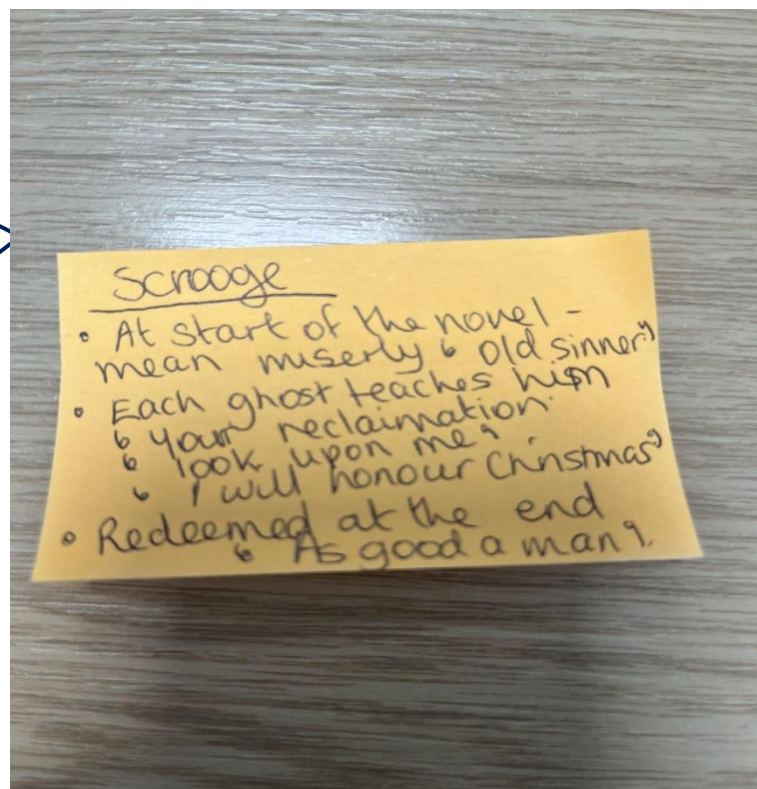 Scrooge
• At start of the novel -
mean miserly ‘old sinner’
• Each ghost teaches him
‘your reclaimation’
‘look upon me’
‘I will honour Christmas’
• Redeemed at the end
‘As good a man’.